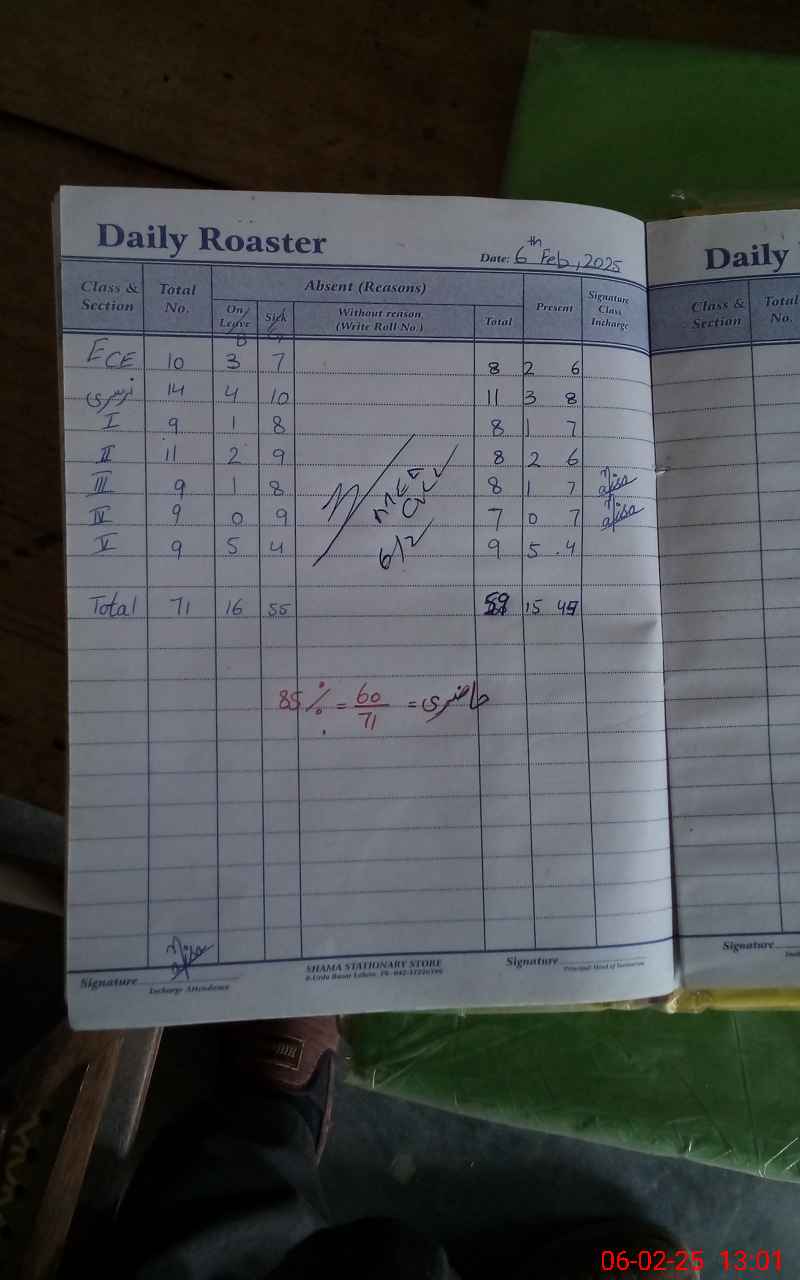 Daily Roaster
Date: 6th Feb, 2025
Class & Section Total No. Absent (Reasons) Present Signature Class Incharge
On Leave Sick Without reason (Write Roll No.) Total
B G
ECE 10 3 7 8 2 6
نرسری 14 4 10 11 3 8
I 9 1 8 8 1 7
II 11 2 9 8 2 6
III 9 1 8 8 1 7
IV 9 0 9 7 0 7
V 9 5 4 9 5 4
6/2
Total 71 16 55 59 15
حاضری = 60/71 = 85%
Signature
Incharge Attendance
SHAMA STATIONARY STORE
Signature
Daily
Class & Section Total No.
Signature
06-02-25 13:01